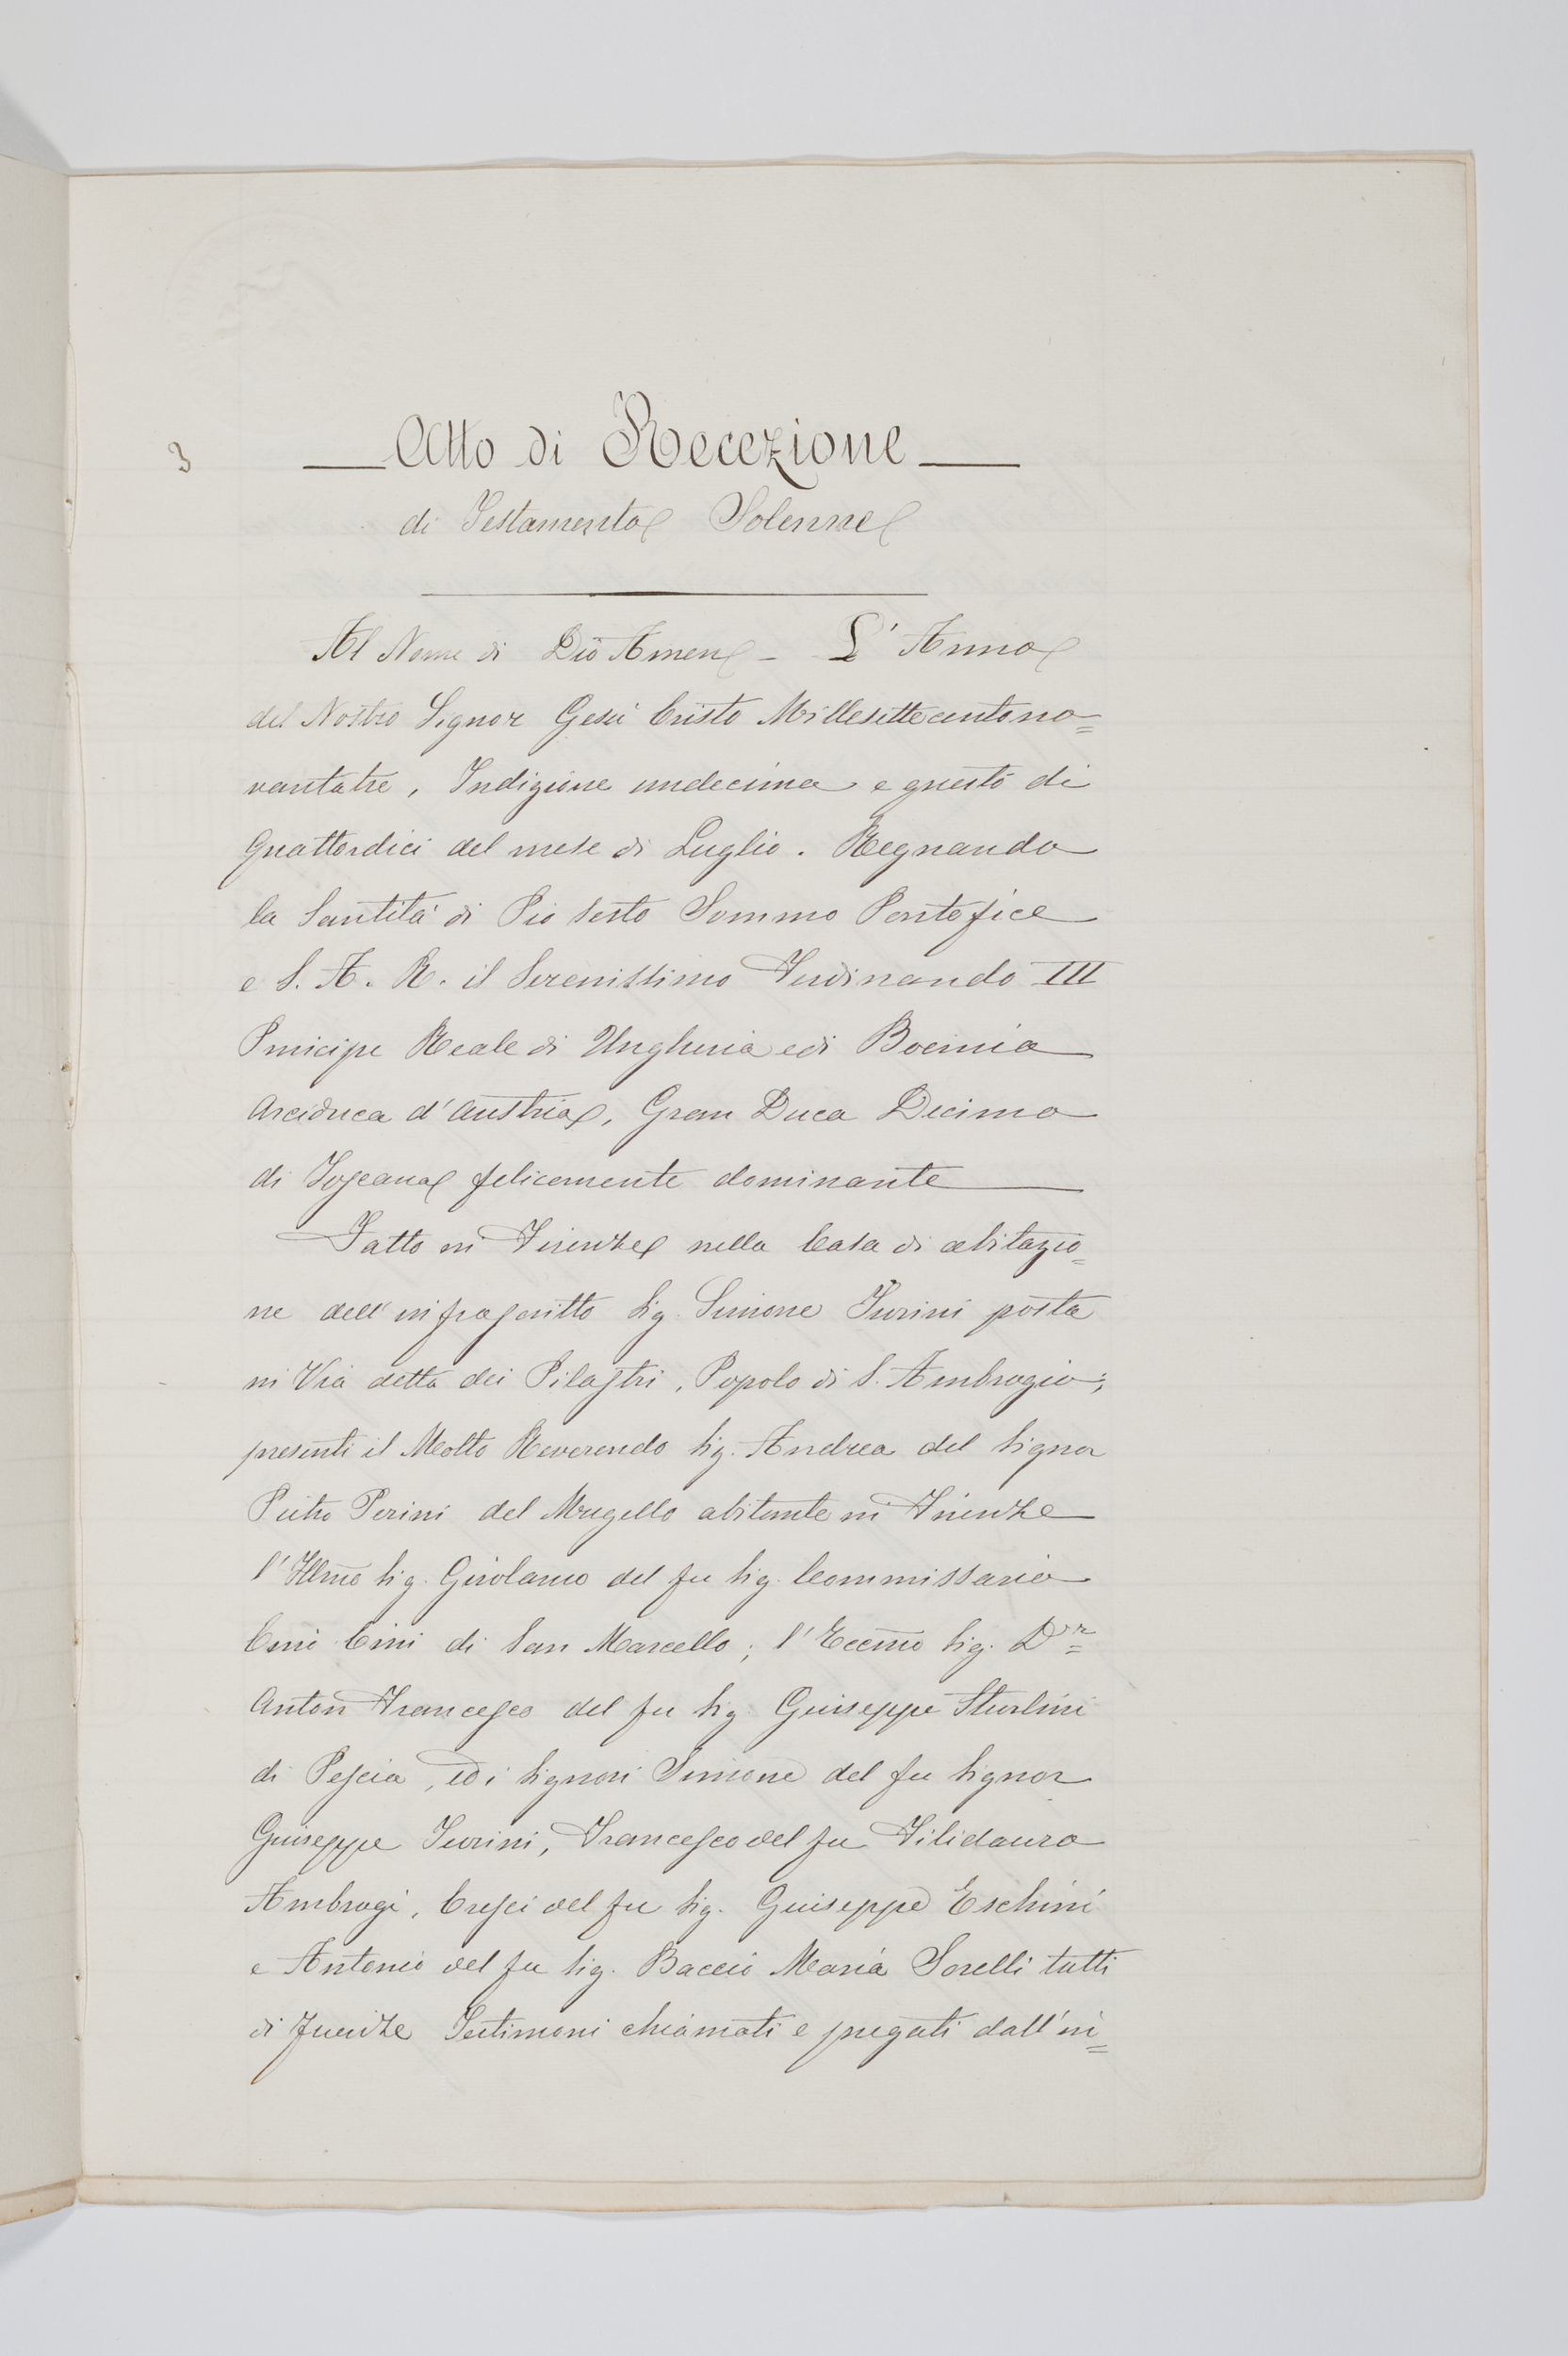 3
Atto di Recezione
di Testamento Solenne
Al Nome di Dio Amen - L' Anno
del Nostro Signor Gesù Cristo Millesettecentono=
vantatre, Indizione undecima e questo di
Quattordici del mese di Luglio. Regnando
la Santità di Pio Sesto Sommo Pontefice
e S. A. R. il Serenissimo Ferdinando III
Principe Reale di Ungheria e di Boemia
Arciduca d'Austria, Gran Duca Decimo
di Toscana felicemente dominante
Fatto in Firenze nella Casa di abitazio=
ne dell'infrascritto Sig. Simone Turini posta
in Via detta dei Pilastri, Popolo di S. Ambrogio;
presenti il Molto Reverendo Sig. Andrea del Signor
Pietro Perini del Mugello abitante in Firenze
l'Illmo Sig. Girolamo del fu Sig. Commissario
Cini di San Marcello; l'Eccmo Sig. Drr=
Anton Francesco del fu Sig Giuseppe Sturlini
di Pescia, ed i Signori Simone del fu Signor
Giuseppe Turini, Francesco del fu Filidauro
Ambrogi, Cresci del fu Sig. Giuseppe Eschini
e Antonio del fu Sig. Baccio Maria Sorelli tutti
di Firenze Testimoni chiamati e pregati dall'in=